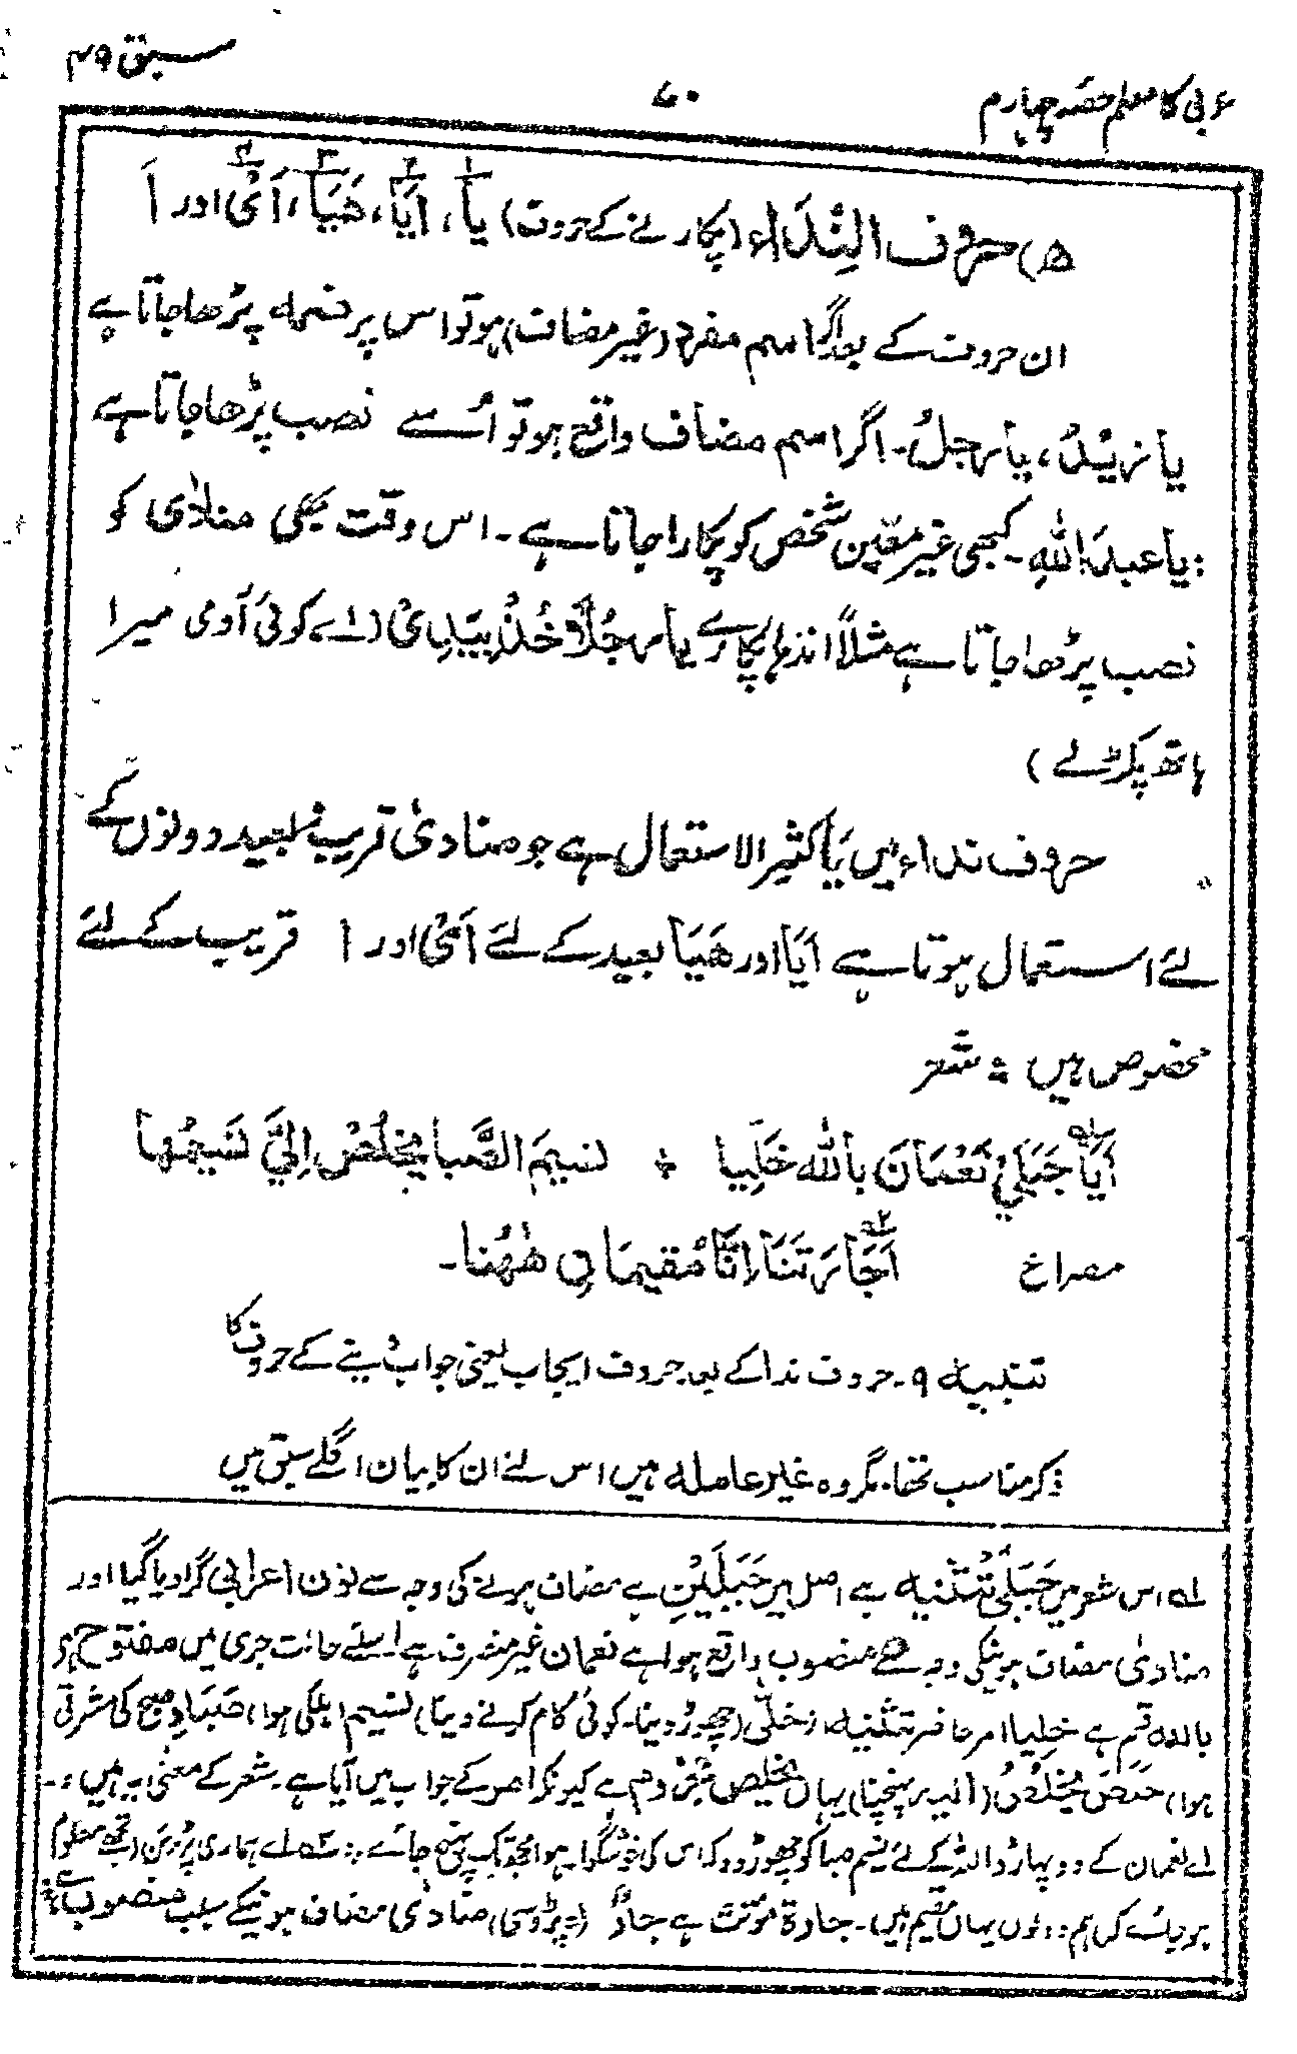 سبق ۴۹
۷۰
عربی کا معلم حصّہ چہارم
(۵) حروف النِّدَاء (پکارنے کے حروف) یَا، اَیَا، هَیَا، اَیْ اور اَ
ان حروف کے بعد اگر اسم مفرد (غیر مضاف) ہو تو اس پر ضمہ پڑھا جاتا ہے
یا زیدُ، یا رجلُ۔ اگر اسم مضاف واقع ہو تو اُسے نصب پڑھا جاتا ہے
: یا عبدَ اللهِ۔ کبھی غیر معیّن شخص کو پکارا جاتا ہے۔ اس وقت بھی منادٰی کو
نصب پڑھا جاتا ہے مثلاً اندھا پکارے یا رجُلاً خُذْ بِیَدِیْ (اے کوئی آدمی میرا
ہاتھ پکڑ لے)
حروف نداء میں یَا کثیر الاستعمال ہے جو منادیٰ قریب و بعید دونوں کے
لئے استعمال ہوتا ہے اَیَا اور هَیَا بعید کے لئے اَیْ اور أ قریب کے لئے
مخصوص ہیں : شعر
اَیَا جَبَلَيْ نَعْمَانَ بِاللهِ خَلِّیا ÷ نسیمَ الصَّبا یَخْلُصْ اِلَيَّ نَسِیْمُها
مصراع اَجَارَتَنَا اِنَّا مُقیمَا فِي هٰهُنا۔
تنبیہ ۹۔ حروف ندا کے بعد حروف ایجاب یعنی جواب دینے کے حروف کا
ذکر مناسب تھا۔ مگر وہ غیر عاملہ ہیں اس لئے ان کا بیان اگلے سبق میں
لہ اس شعر میں جَبَلَيْ تثنیہ ہے اصل میں جَبَلَیْنِ ہے مضاف ہونے کی وجہ سے نون اعرابی گرا دیا گیا اور
منادیٰ مضاف ہونیکی وجہ سے منصوب واقع ہوا ہے نعمان غیر منصرف ہے اسلئے حالت جری میں مفتوح ہے
باللہ قسم ہے خلیا امر حاضر تثنیہ از خلّی (چھوڑ دینا۔ کوئی کام کرنے دینا) نسیم (ہلکی ہوا) صَبَا (صبح کی مشرقی
ہوا) خَلَصَ یَخْلُصُ (الیہ پہنچنا) یہاں یخلص مجزوم ہے کیونکہ امر کے جواب میں آیا ہے۔ شعر کے معنی یہ ہیں :-
اے نعمان کے دو پہاڑو اللہ کے لئے نسیم صبا کو چھوڑ دو کہ اس کی خوشگوار ہوا مجھ تک پہنچ جائے :: ۲ اے ہماری پڑوسن (تجھے معلوم
ہو جائے) کہ ہم دونوں یہاں مقیم ہیں۔ جارة مؤنث ہے جارٌ (= پڑوسی) منادٰی مضاف ہونیکے سبب منصوب ہے